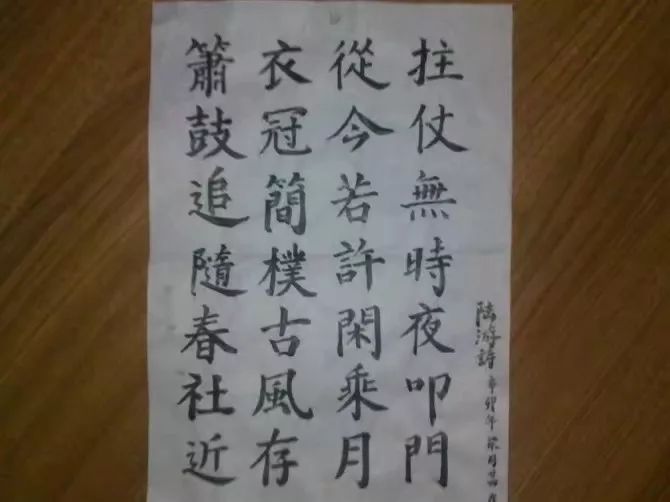 簫鼓追隨春社近
衣冠簡樸古風存
從今若許閑乘月
拄仗無時夜叩門
陸游詩 辛卯年 月